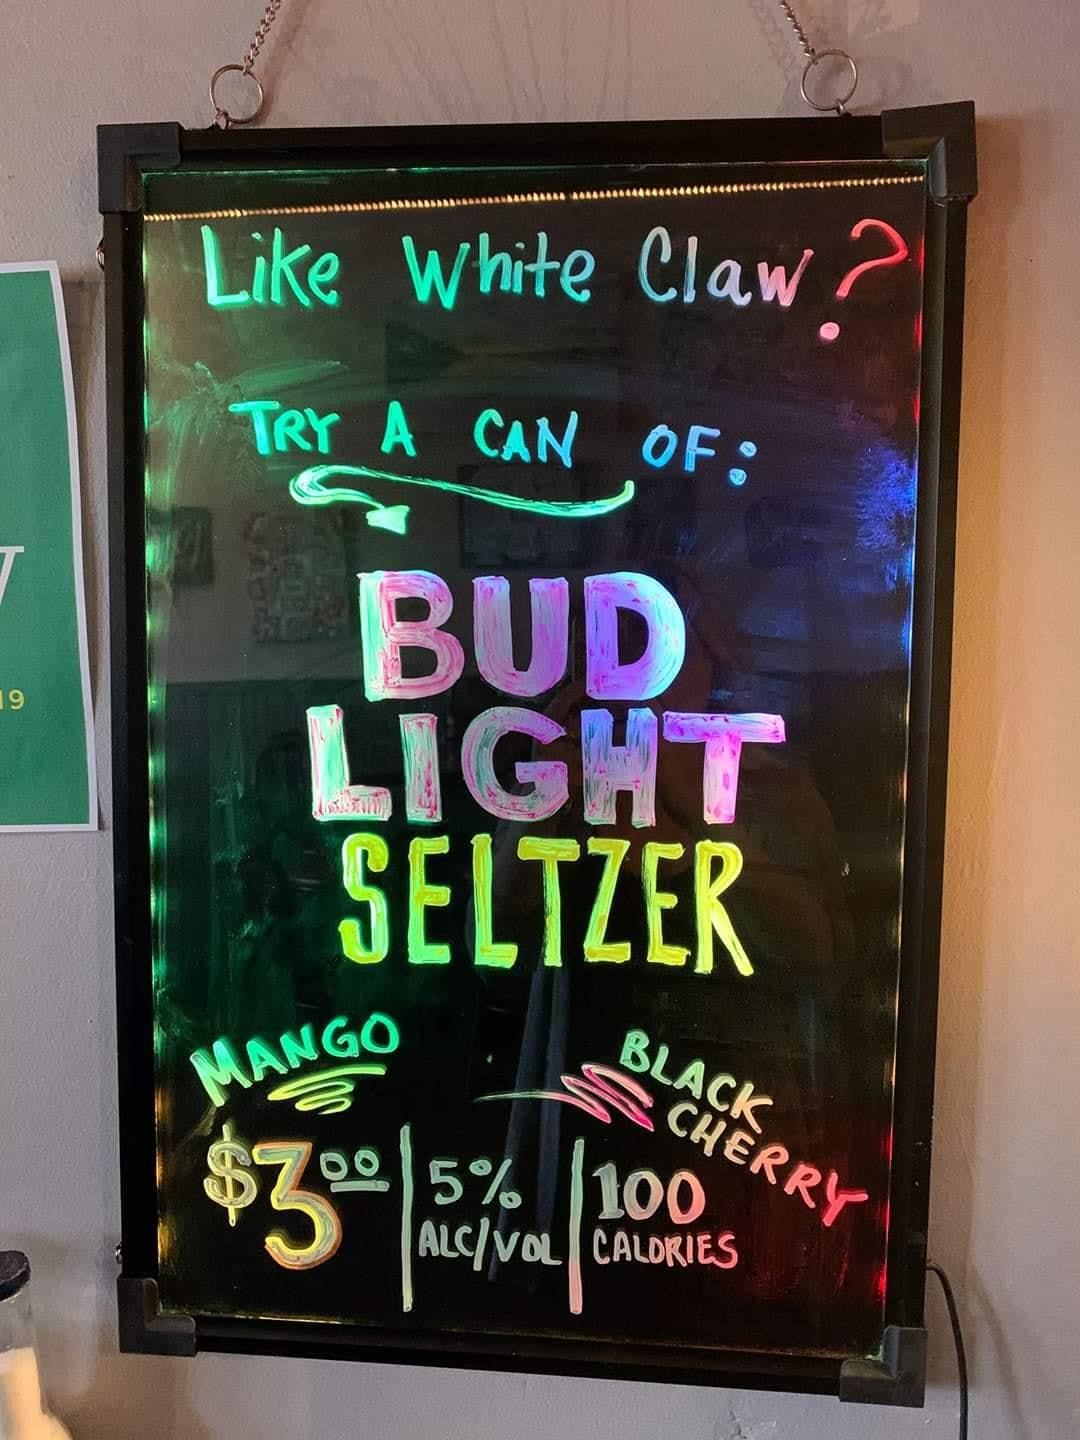 Like White Claw?
TRY A CAN OF:
BUD
LIGHT
SELTZER
MANGO
BLACK
CHERRY
$3.00
5%
ALC/VOL
100
CALORIES
19